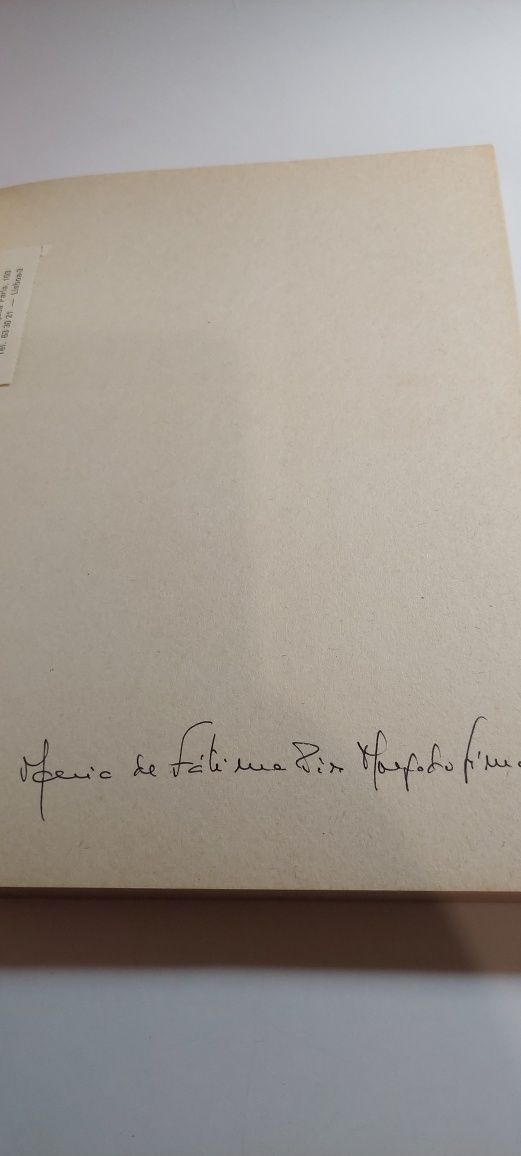 Paris, 103
Tel. 63 30 21 — Lisboa-3
Maria de Fátima Dix Morgado